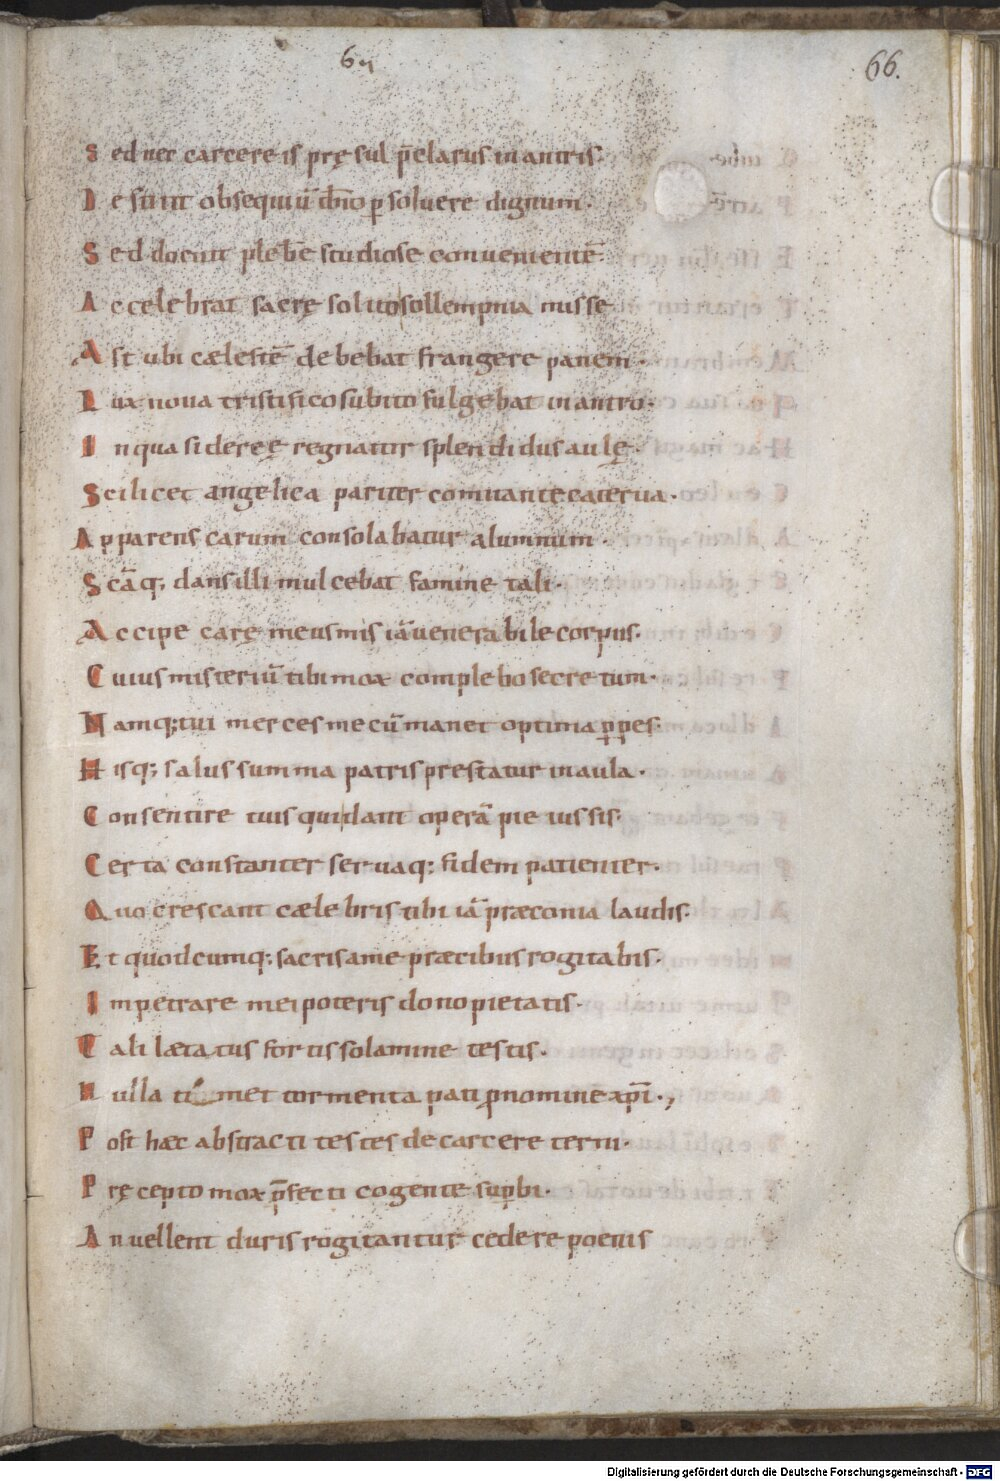 6 66.
Sed nec carcereis pręsul p̄clarus in antris.
Desinit obsequiū dn̄o p̱soluere dignum.
Sed docuit plebē studiose conuenientē.
Ac celebrat sacrę soluo sollempnia missę
Ast ubi cælestē debebat frangere panem.
Lux noua tristifico subito fulgebat in antro.
In qua sidereę regnator splendidus aulę.
Scilicet angelica pariter comitante caterua.
Apparens carum consolabatur alumnum.
Scāq; dans illi mulcebat famine tali.
Accipe carę meus mis iā uenerabile corpus.
Cuius misteriū tibi mox complebo secretum.
Namq; tui merces mecū manet optima ꝑpes.
Hisq; salus summa patris prestatur in aula.
Consentire tuis qui dant operā pie iussis.
Certa constanter seruaq; fidem patienter.
Quo crescant cælebris tibi iā præconia laudis.
Et quodcumq; sacris a me præcibus rogitabis.
Impetrare mei poteris dono pietatis.
Tali lætatus fortis solamine testis.
Nulla timet tormenta pati ꝓ nomine xp̄i.,
Post hæc abstracti testes de carcere terni.
Pręcepto mox p̄fecti cogente suꝑbi.
An uellent duris rogitantur cedere poenis
Digitalisierung gefördert durch die Deutsche Forschungsgemeinschaft - DFG